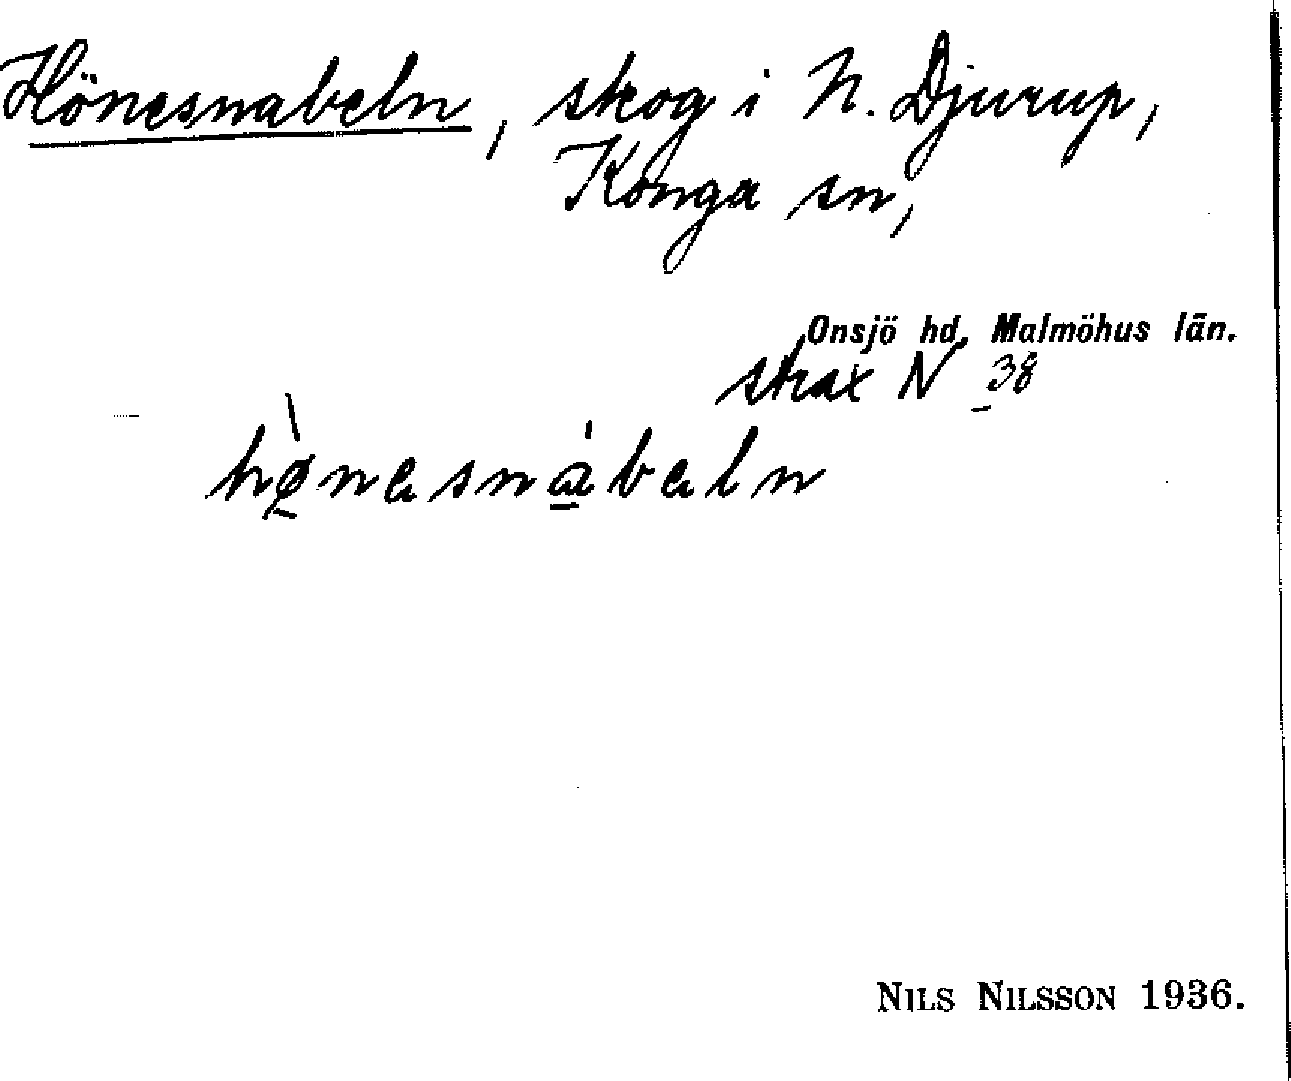 Hönesnabeln, skog i N. Djurup,
Konga sn,
Onsjö hd, Malmöhus län.
strax N 38
hø̀nesnábeln
NILS NILSSON 1936.